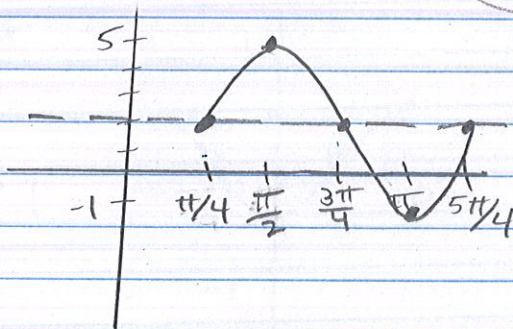 5
-1 π/4 π/2 3π/4 π 5π/4